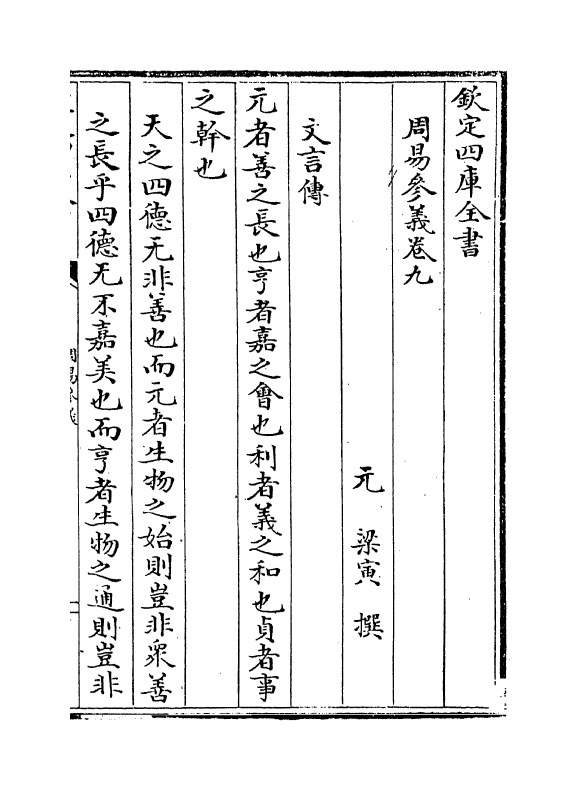 欽定四庫全書
周易參義卷九
元 梁寅 撰
文言傳
元者善之長也亨者嘉之會也利者義之和也貞者事
之幹也
天之四德无非善也而元者生物之始則豈非衆善
之長乎四德无不嘉美也而亨者生物之通則豈非